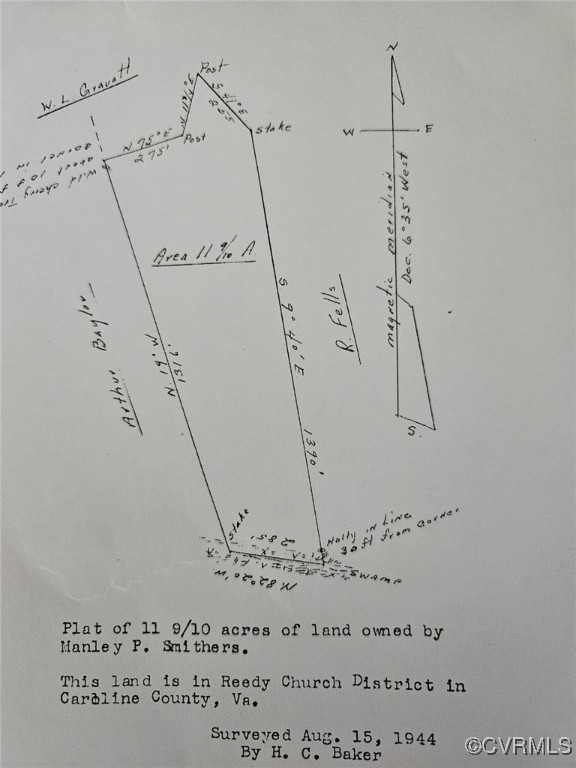 N
W. L. Gravatt
Post
N 11 3/4° E
S 41° E
stake
W E
N 75° E
275'
Post
wild cherry
about 10 ft
corner in
Area 11 9/10 A
magnetic meridian
Dec. 6° 35' West
S 9° 40' E
1390'
R. Fells
Arthur Baylor
N 19° W
1316'
S.
stake
285'
Holly in Line
30 ft from corner
swamp
N. 82° 20' W.
Plat of 11 9/10 acres of land owned by
Manley P. Smithers.
This land is in Reedy Church District in
Caroline County, Va.
Surveyed Aug. 15, 1944
By H. C. Baker
©CVRMLS